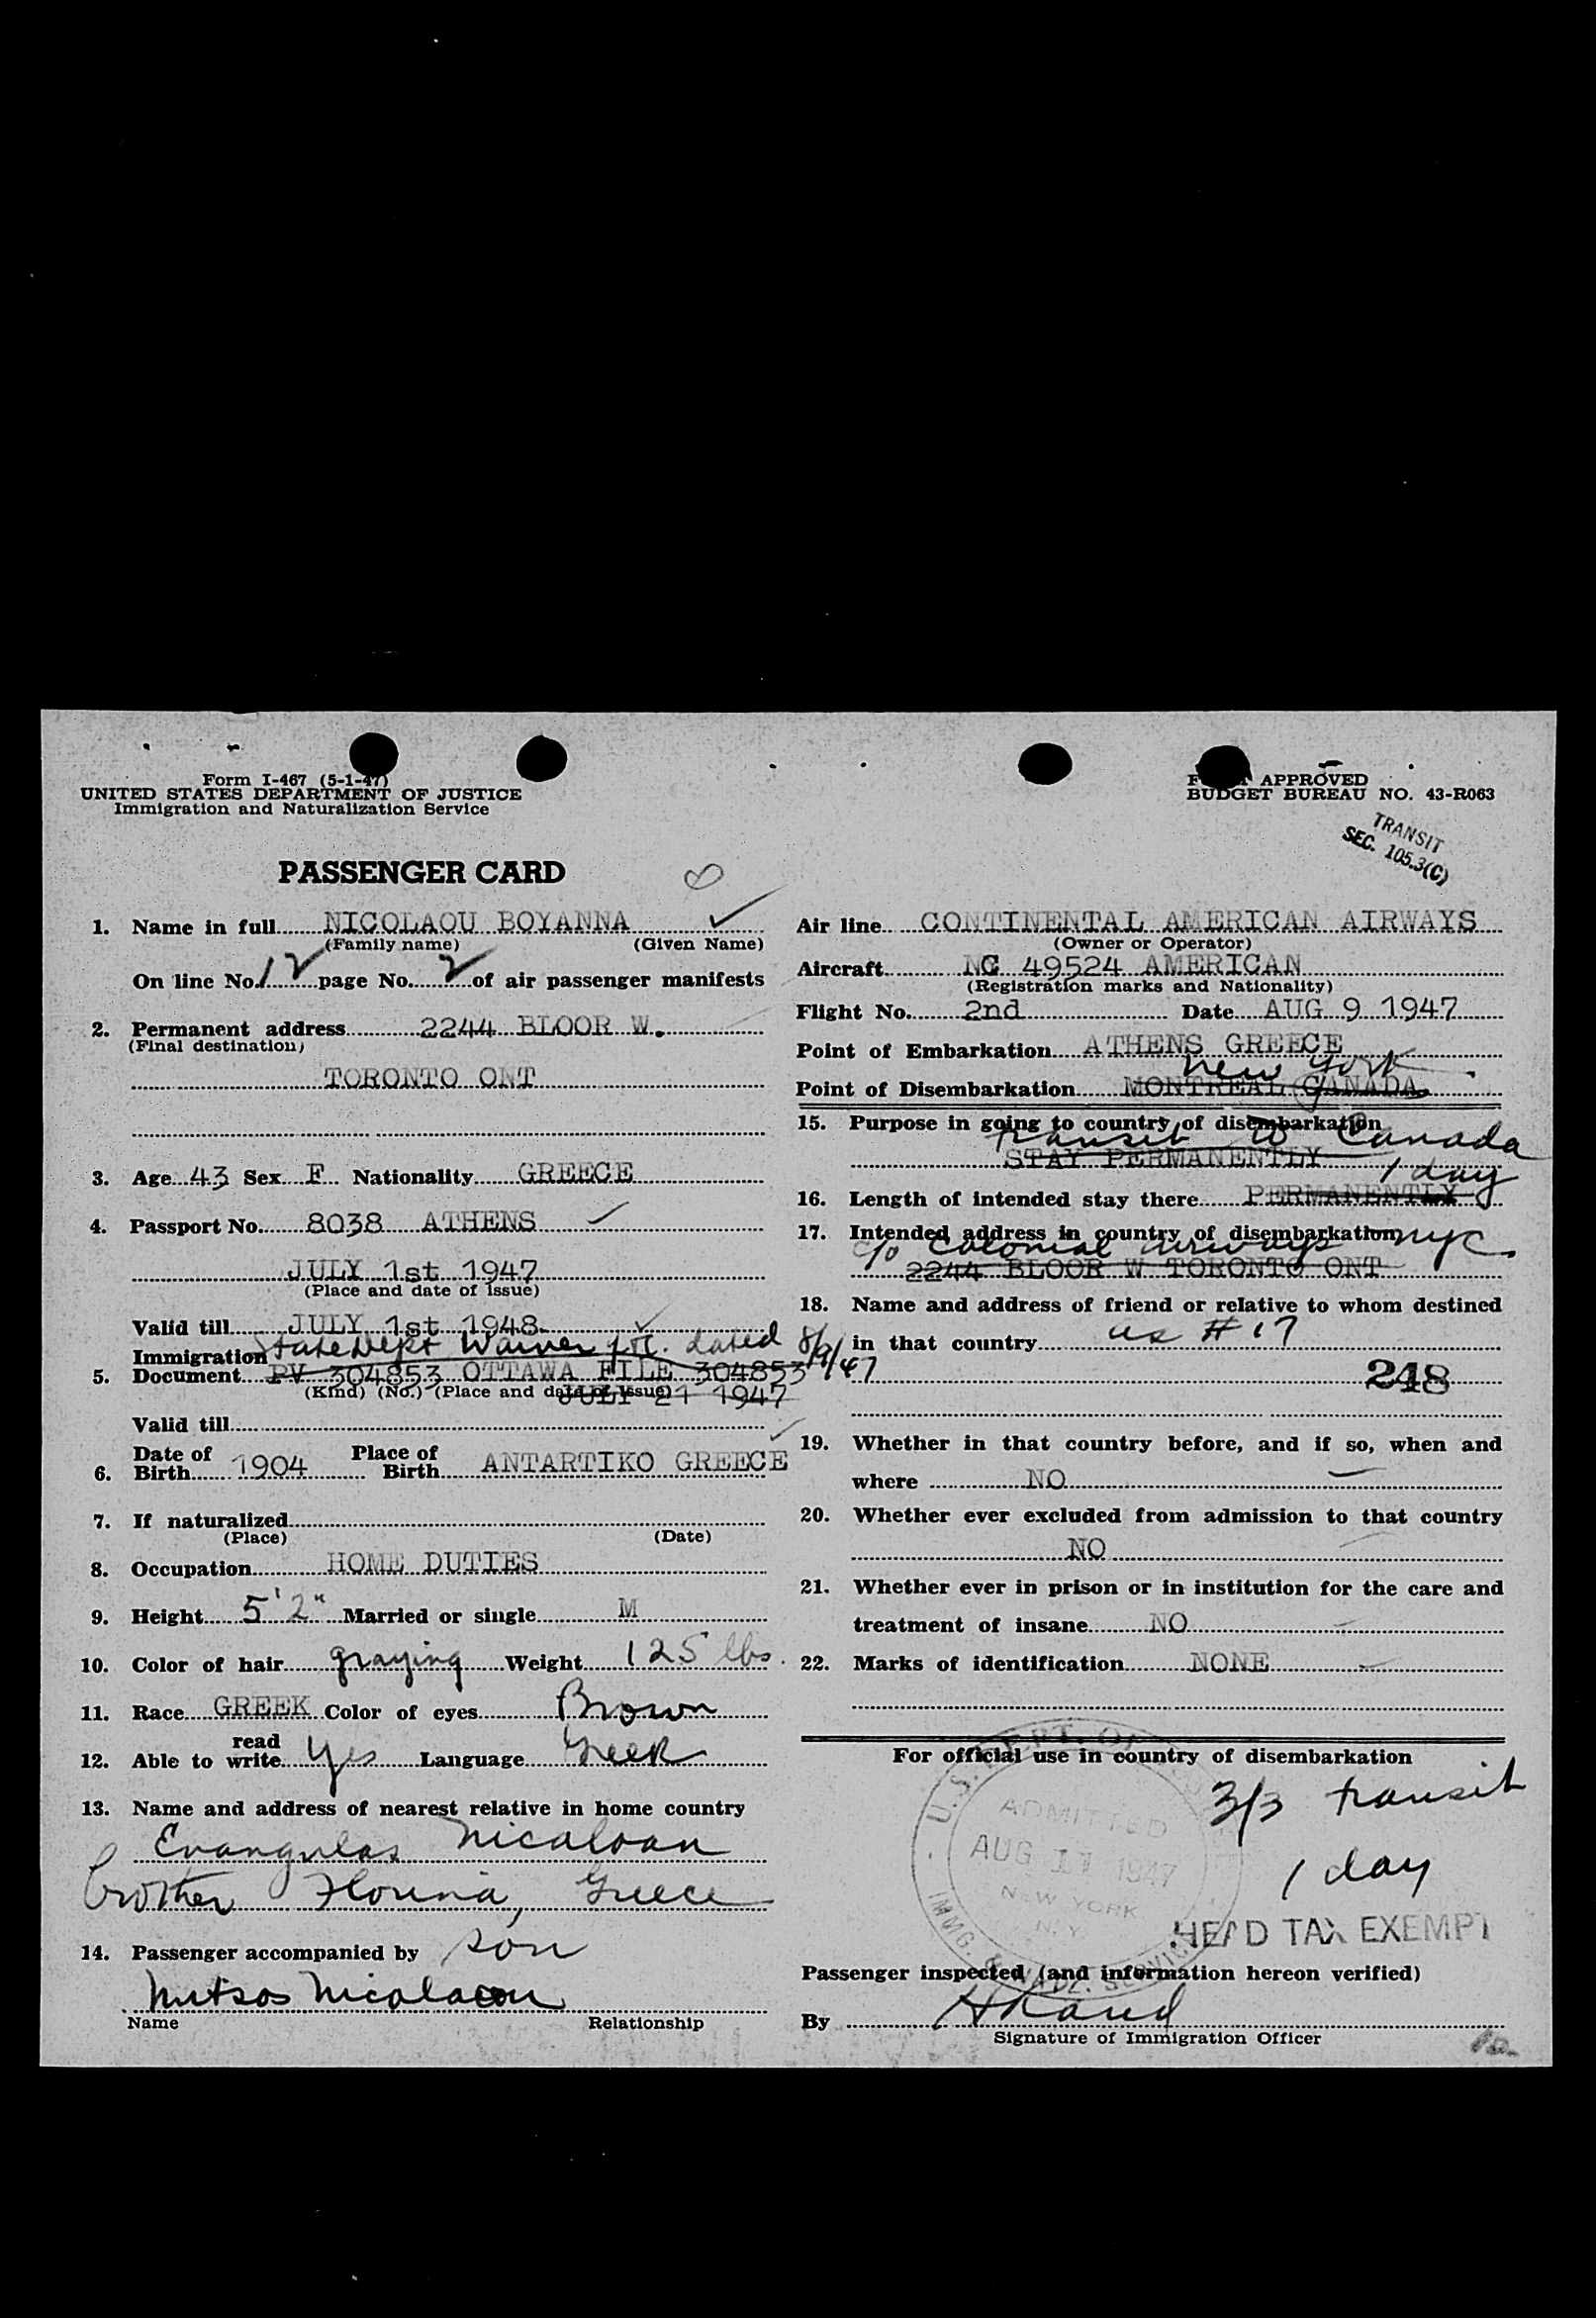 Form I-467 (5-1-47)
UNITED STATES DEPARTMENT OF JUSTICE
Immigration and Naturalization Service
APPROVED
BUDGET BUREAU NO. 43-R063
TRANSIT
SEC. 105.3(C)
PASSENGER CARD
1. Name in full NICOLAOU BOYANNA
(Family name) (Given Name)
On line No. 12 page No. 2 of air passenger manifests
2. Permanent address 2244 BLOOR W.
(Final destination)
TORONTO ONT
3. Age 43 Sex F Nationality GREECE
4. Passport No. 8038 ATHENS
JULY 1st 1947
(Place and date of issue)
Valid till JULY 1st 1948
State Dept Waiver dated 8/9/47
5. Immigration Document PV 304853 OTTAWA FILE 304853
(Kind) (No.) (Place and date of issue)
JULY 21 1947
Valid till
6. Date of Birth 1904 Place of Birth ANTARTIKO GREECE
7. If naturalized
(Place) (Date)
8. Occupation HOME DUTIES
9. Height 5'2" Married or single M
10. Color of hair graying Weight 125 lbs.
11. Race GREEK Color of eyes Brown
12. Able to read write yes Language Greek
13. Name and address of nearest relative in home country
Evangulas Nicoloau
brother Florina, Greece
14. Passenger accompanied by son
Mitsos Nicolaou
Name Relationship
Air line CONTINENTAL AMERICAN AIRWAYS
(Owner or Operator)
Aircraft NC 49524 AMERICAN
(Registration marks and Nationality)
Flight No. 2nd Date AUG 9 1947
Point of Embarkation ATHENS GREECE
New York
Point of Disembarkation MONTREAL CANADA
15. Purpose in going to country of disembarkation
Transit to Canada
STAY PERMANENTLY
1 day
16. Length of intended stay there PERMANENTLY
17. Intended address in country of disembarkation
c/o Colonial Airways NYC.
2244 BLOOR W TORONTO ONT
18. Name and address of friend or relative to whom destined
in that country as #17
248
19. Whether in that country before, and if so, when and
where NO
20. Whether ever excluded from admission to that country
NO
21. Whether ever in prison or in institution for the care and
treatment of insane NO
22. Marks of identification NONE
For official use in country of disembarkation
U.S. DEPT. OF
ADMITTED
AUG 11 1947
NEW YORK
N.Y.
IMMG. & NATZ. SERVICE
3/3 transit
1 day
HEAD TAX EXEMPT
Passenger inspected (and information hereon verified)
By
Signature of Immigration Officer